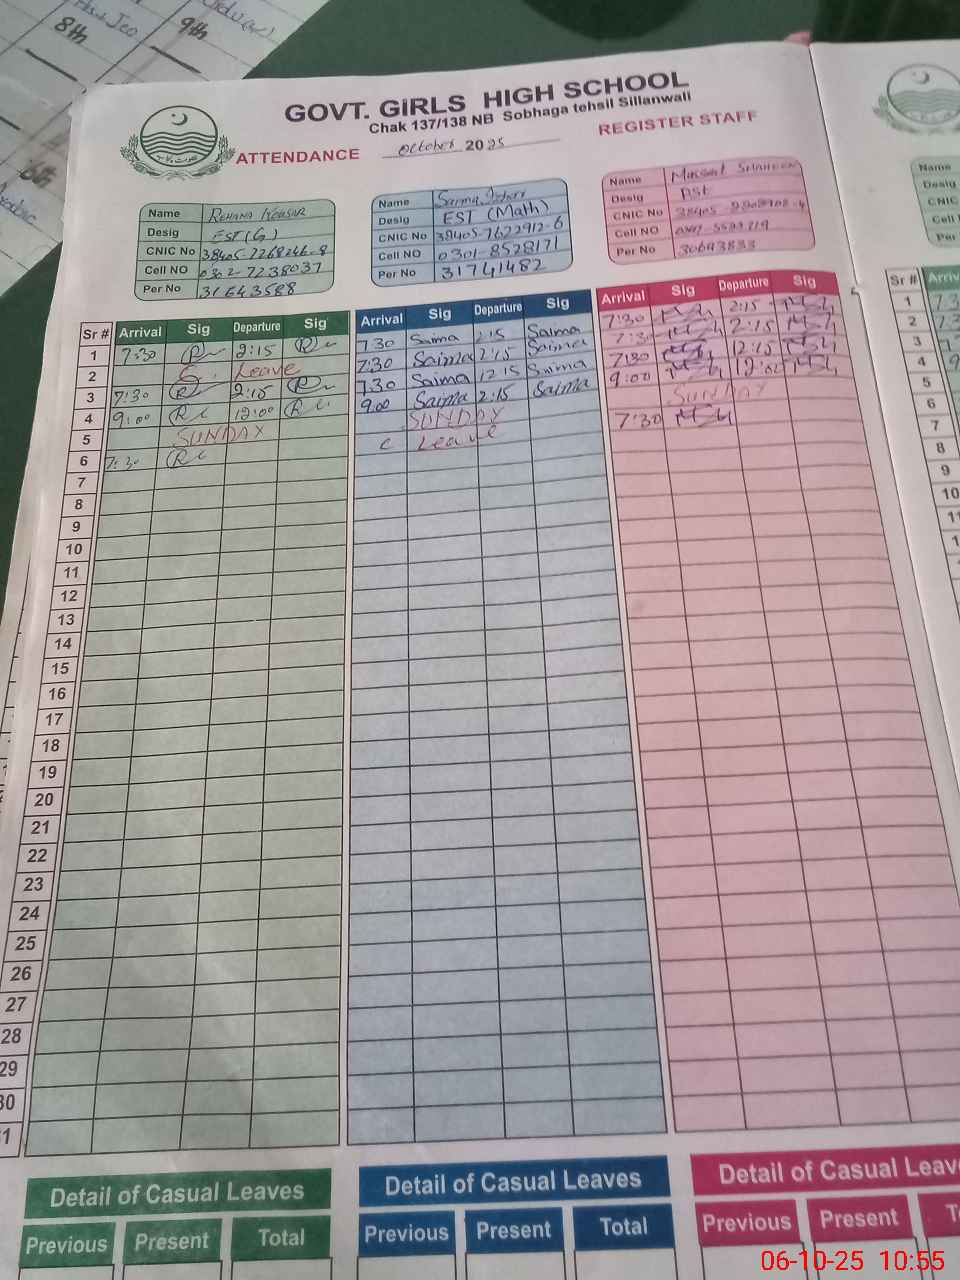 8th
9th
GOVT. GIRLS HIGH SCHOOL
Chak 137/138 NB Sobhaga tehsil Sillanwali
ATTENDANCE October 2025 REGISTER STAFF
Name Rehana Kousar
Desig EST (G)
CNIC No 38405-7268246-8
Cell NO 0302-7238037
Per No 31643588
Name Saima
Desig EST (Math)
CNIC No 38405-7622912-6
Cell NO 0301-8528171
Per No 31741482
Name Mussarat Shaheen
Desig PST
CNIC No
Cell NO
Per No 30693833
Name
Desig
CNIC
Cell
Per
Sr # Arrival Sig Departure Sig Arrival Sig Departure Sig Arrival Sig Departure Sig Sr # Arriv
1 7:30 2:15 7:30 Saima 2:15 Saima 7:30 2:15 1
2 Leave 7:30 Saima 2:15 Saima 7:30 2:15 2
3 7:30 2:15 7:30 Saima 12:15 Saima 7:30 12:15 3
4 9:00 12:00 9:00 Saima 2:15 Saima 9:00 12:00 4
5 SUNDAY SUNDAY SUNDAY 5
6 7:30 C Leave 7:30 6
7 7
8 8
9 9
10 10
11
12
13
14
15
16
17
18
19
20
21
22
23
24
25
26
27
28
29
30
31
Detail of Casual Leaves Detail of Casual Leaves Detail of Casual Leav
Previous Present Total Previous Present Total Previous Present T
06-10-25 10:55